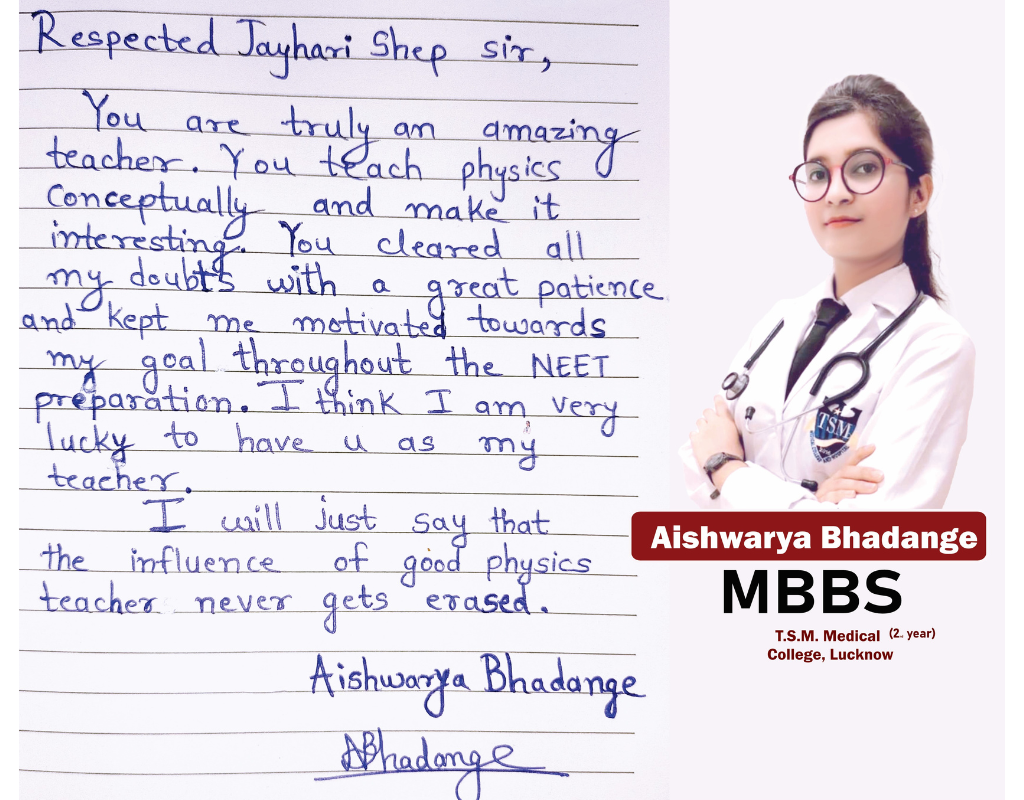 Respected Jayhari Shep sir,
You are truly an amazing
teacher. You teach physics
conceptually and make it
interesting. You cleared all
my doubts with a great patience
and kept me motivated towards
my goal throughout the NEET
preparation. I think I am very
lucky to have u as my
teacher.
I will just say that
the influence of good physics
teacher never gets erased.
Aishwarya Bhadange
ABhadange
TSM
Aishwarya Bhadange
MBBS
T.S.M. Medical (2. year)
College, Lucknow